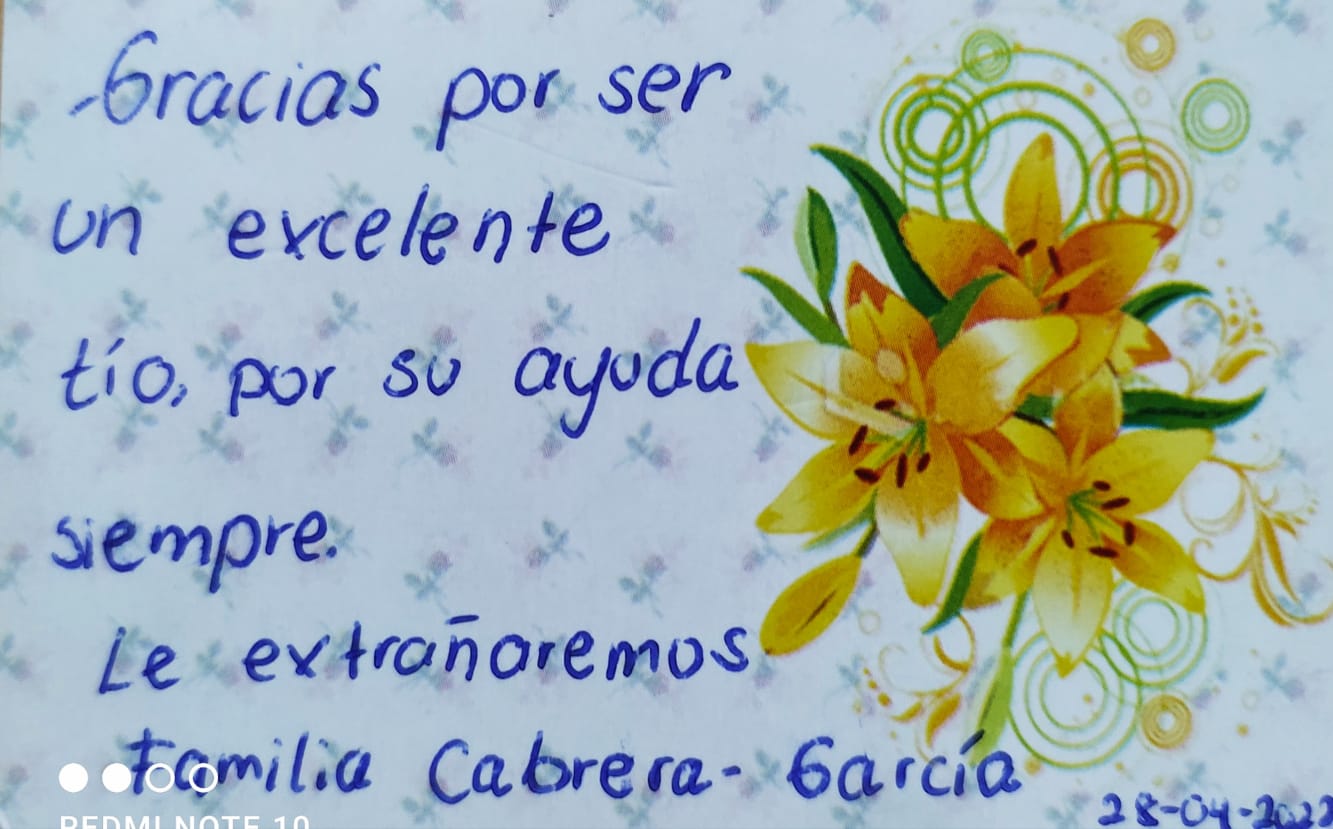 Gracias por ser
un excelente
tío, por su ayuda
siempre.
Le extrañaremos
Familia Cabrera - García
28-04-2022
REDMI NOTE 10